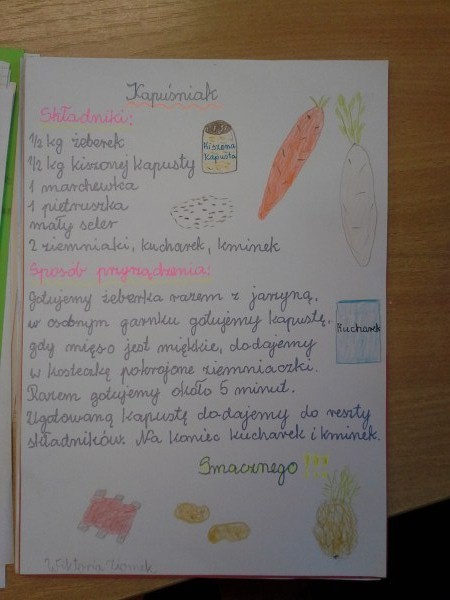 Kapuśniak
Składniki:
1/2 kg żeberek
1/2 kg kiszonej kapusty
1 marchewka
1 pietruszka
mały seler
2 ziemniaki, kucharek, kminek
Kiszona
Kapusta
Sposób przyrządzenia:
Gotujemy żeberka razem z jarzyną,
w osobnym garnku gotujemy kapustę,
gdy mięso jest miękkie, dodajemy
w kosteczkę pokrojone ziemniaczki.
Razem gotujemy około 5 minut.
Ugotowaną kapustę dodajemy do reszty
składników. Na koniec kucharek i kminek.
Kucharek
Smacznego!!!
Wiktoria